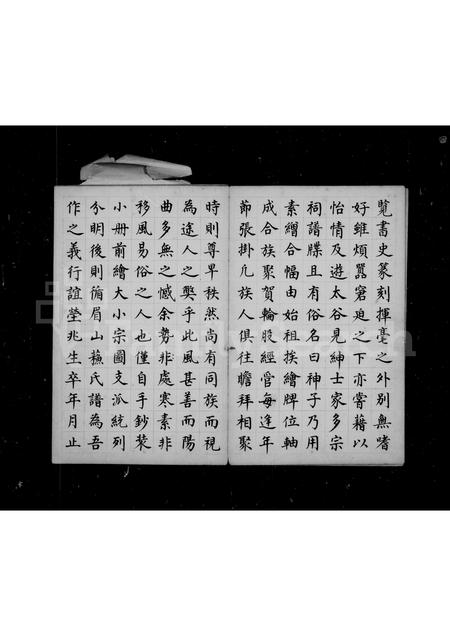 覽書史篆刻揮毫之外別無嗜
好雖煩囂窘迫之下亦嘗藉以
怡情及遊太谷見紳士家多宗
祠譜牒且有俗名曰神子乃用
素繒合幅由始祖挨繪牌位軸
成合族聚賀輪股經管每逢年
節張掛凢族人俱往瞻拜相聚
時則尊卑秩然尚有同族而視
為途人之獘乎此風甚善而陽
曲多無之憾余勢非處寒素非
移風易俗之人也僅自手鈔裝
小册前繪大小宗圖支派統列
分明後則循眉山蘓氏譜為吾
作之義行誼塋兆生卒年月止